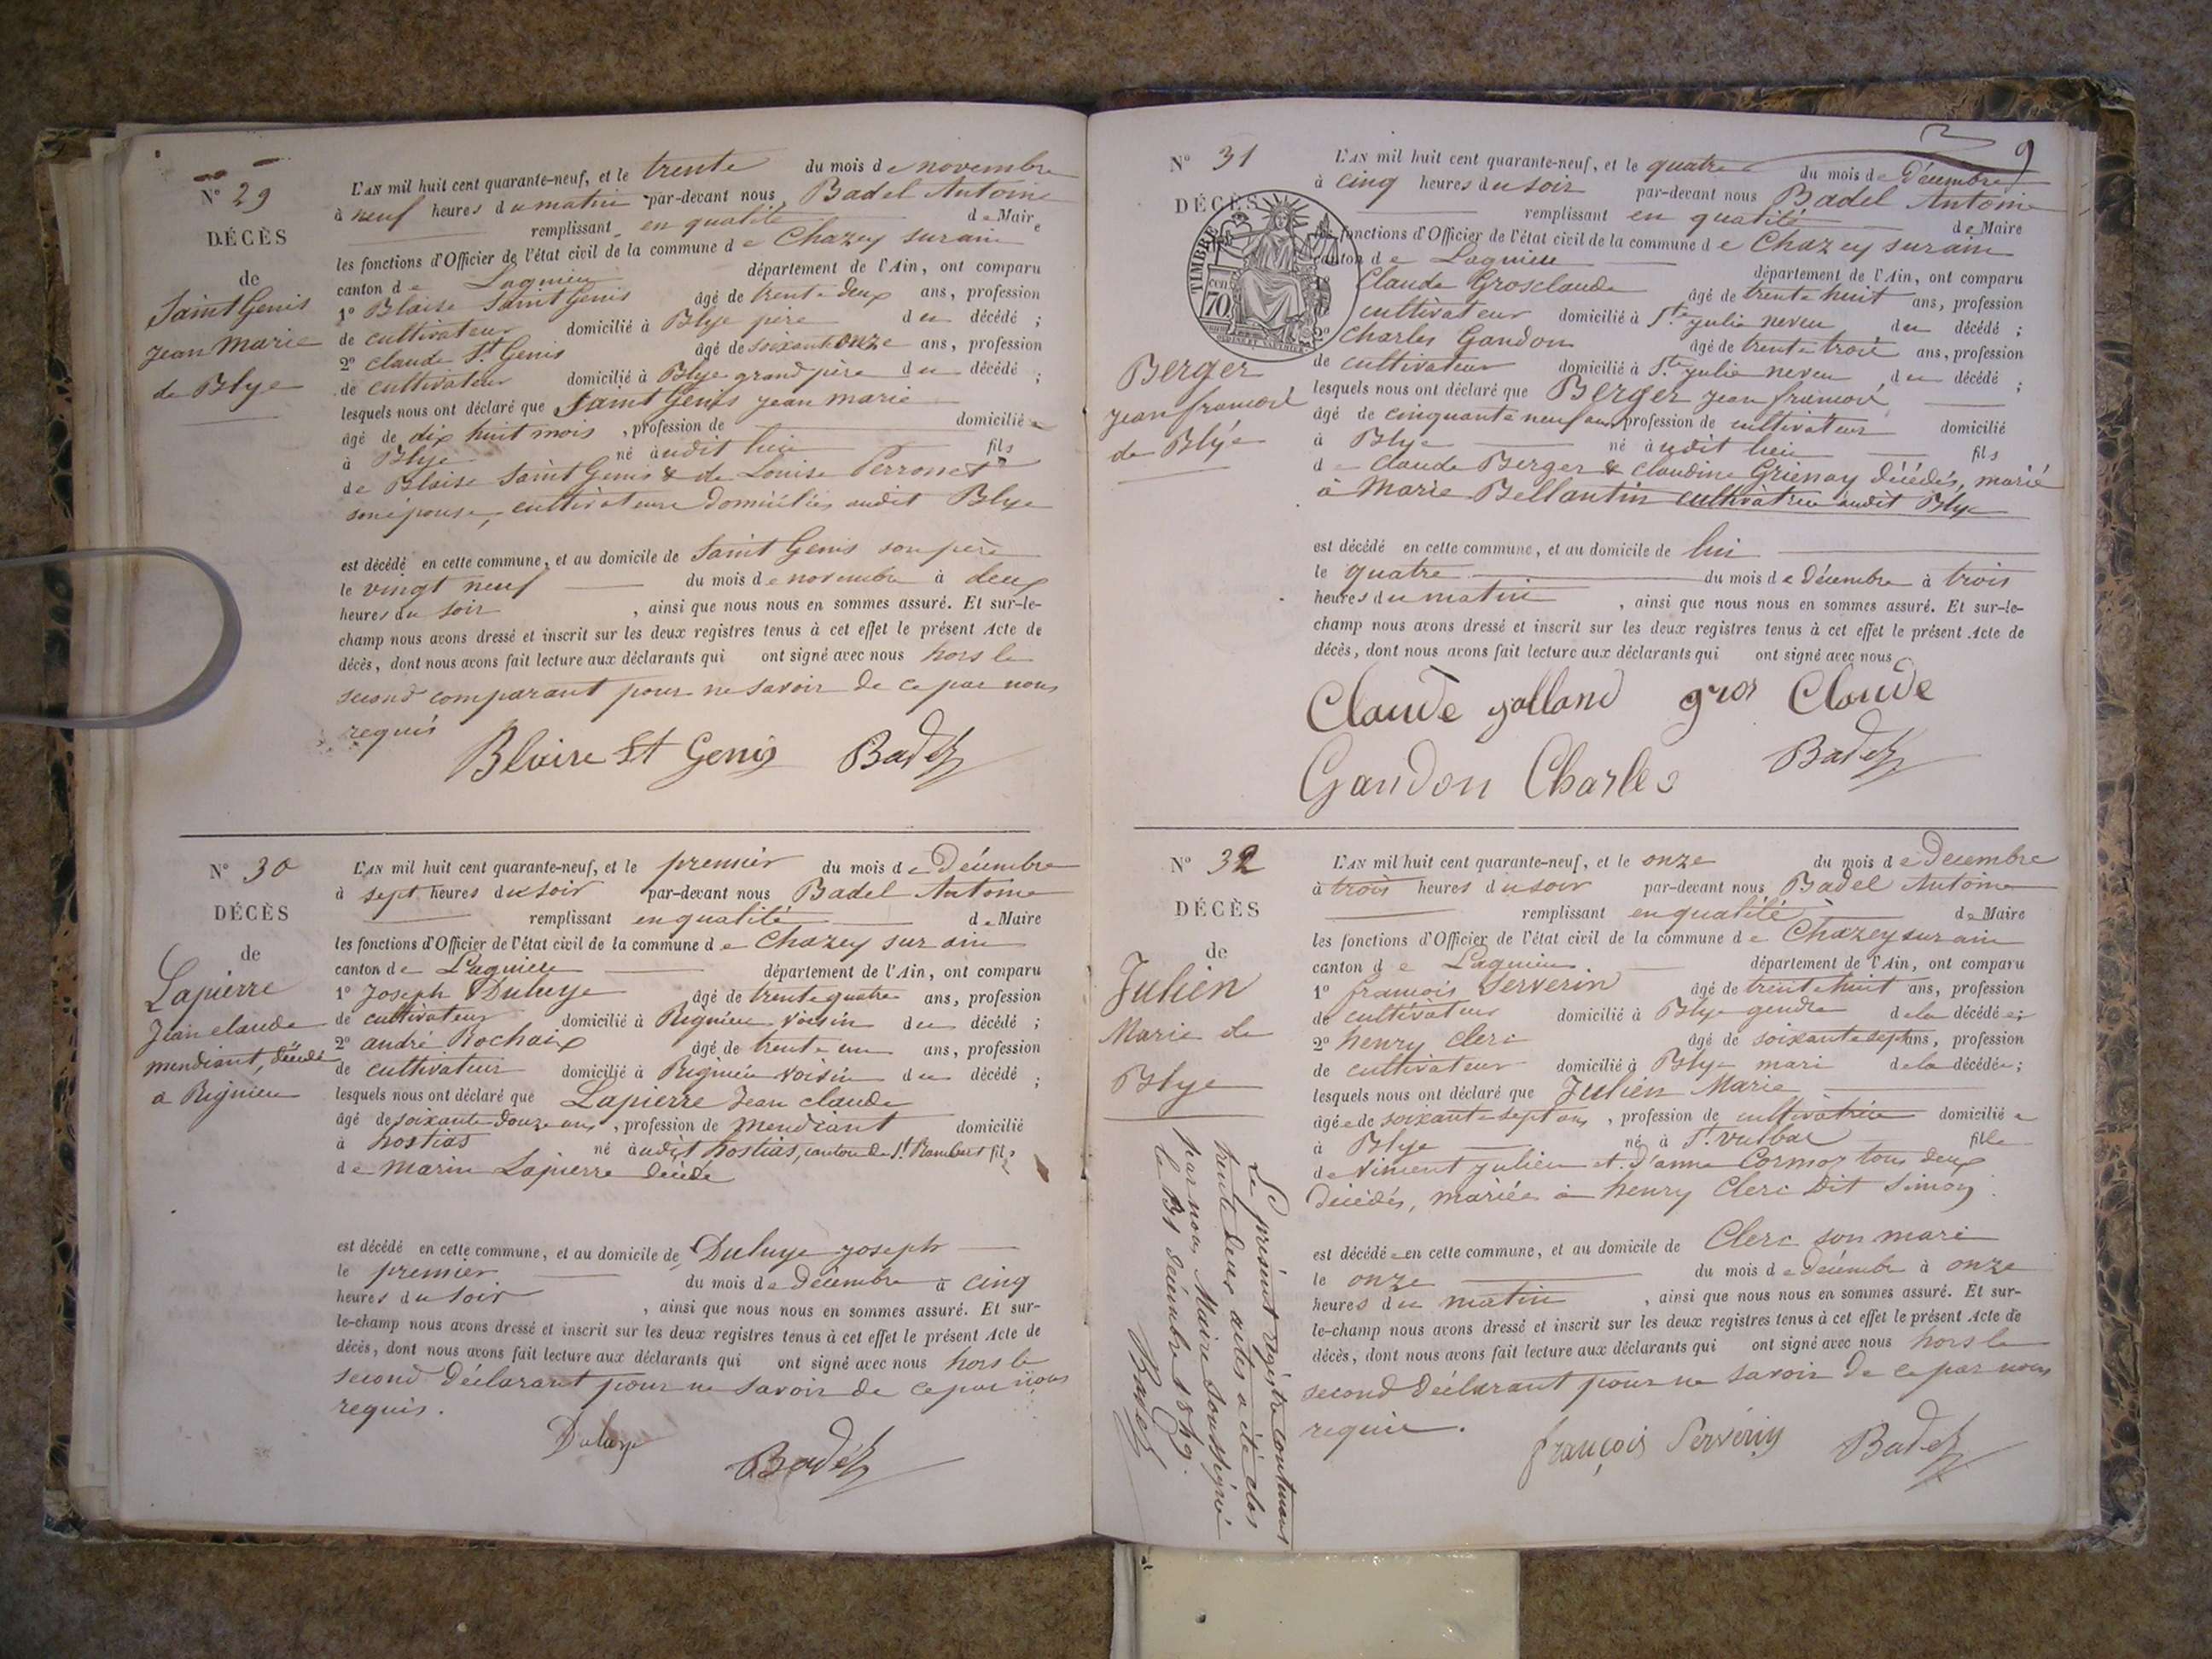 N° 29
DÉCÈS
de
Saint Genis
Jean Marie
de Blye
L'AN mil huit cent quarante-neuf, et le trente du mois de novembre
à neuf heures du matin par-devant nous Badel Antoine
remplissant en qualité de Maire
les fonctions d'Officier de l'état civil de la commune de Chazey sur ain
canton de Lagnieu département de l'Ain, ont comparu
1° Blaise Saint Genis âgé de trente deux ans, profession
de cultivateur domicilié à Blye père du décédé ;
2° claude St Genis âgé de soixante onze ans, profession
de cultivateur domicilié à Blye grand père du décédé ;
lesquels nous ont déclaré que Saint Genis jean marie
âgé de dix huit mois , profession de domicilié
à Blye né audit lieu fils
de Blaise Saint Genis & de Louise Perronet
son épouse, cultivateurs domiciliés audit Blye
est décédé en cette commune, et au domicile de Saint Genis son père
le vingt neuf du mois de novembre à deux
heures du soir , ainsi que nous nous en sommes assuré. Et sur-le-
champ nous avons dressé et inscrit sur les deux registres tenus à cet effet le présent Acte de
décès, dont nous avons fait lecture aux déclarants qui ont signé avec nous hors le
second comparant pour ne savoir de ce par nous
requis
Blaise St Genis Badel
N° 30
DÉCÈS
de
Lapierre
Jean claude
mendiant, décédé
a Rignieu
L'AN mil huit cent quarante-neuf, et le premier du mois de Décembre
à sept heures du soir par-devant nous Badel Antoine
remplissant en qualité de Maire
les fonctions d'Officier de l'état civil de la commune de Chazey sur ain
canton de Lagnieu département de l'Ain, ont comparu
1° Joseph Duluye âgé de trente quatre ans, profession
de cultivateur domicilié à Rignieu voisin du décédé ;
2° andré Rochaix âgé de trente un ans, profession
de cultivateur domicilié à Rignieu voisin du décédé ;
lesquels nous ont déclaré que Lapierre Jean claude
âgé de soixante douze ans , profession de mendiant domicilié
à hostias né audit hostias, canton de St Rambert fils
de Marin Lapierre décédé
est décédé en cette commune, et au domicile de Duluye joseph
le premier du mois de Décembre à cinq
heures du soir , ainsi que nous nous en sommes assuré. Et sur-
le-champ nous avons dressé et inscrit sur les deux registres tenus à cet effet le présent Acte de
décès, dont nous avons fait lecture aux déclarants qui ont signé avec nous hors le
second déclarant pour ne savoir de ce par nous
requis.
Duluye
Badel
9
N° 31
DÉCÈS
TIMBRE
70
Berger
jean francois
de Blye
L'AN mil huit cent quarante-neuf, et le quatre du mois de Décembre
à cinq heures du soir par-devant nous Badel Antoine
remplissant en qualité de Maire
les fonctions d'Officier de l'état civil de la commune de Chazey sur ain
canton de Lagnieu département de l'Ain, ont comparu
1° Claude Grosclaude âgé de trente huit ans, profession
cultivateur domicilié à Ste julie neveu du décédé ;
2° Charles Gandon âgé de trente trois ans, profession
de cultivateur domicilié à Ste julie neveu du décédé ;
lesquels nous ont déclaré que Berger jean francois
âgé de cinquante neuf ans profession de cultivateur domicilié
à Blye né audit lieu fils
de Claude Berger & claudine Grienay décédés, marié
à Marie Bellantin cultivatrice audit Blye
est décédé en cette commune, et au domicile de lui
le quatre du mois de Décembre à trois
heures du matin , ainsi que nous nous en sommes assuré. Et sur-le-
champ nous avons dressé et inscrit sur les deux registres tenus à cet effet le présent Acte de
décès, dont nous avons fait lecture aux déclarants qui ont signé avec nous
Claude golland gros Claude
Gandon Charles Badel
N° 32
DÉCÈS
de
Julien
Marie de
Blye
L'AN mil huit cent quarante-neuf, et le onze du mois de Decembre
à trois heures du soir par-devant nous Badel Antoine
remplissant en qualité de Maire
les fonctions d'Officier de l'état civil de la commune de Chazey sur ain
canton de Lagnieu département de l'Ain, ont comparu
1° francois Serverin âgé de trente huit ans, profession
de cultivateur domicilié à Blye gendre de la décédée;
2° henry Clerc âgé de soixante sept ans, profession
de cultivateur domicilié à Blye mari de la décédée;
lesquels nous ont déclaré que Julien Marie
âgée de soixante sept ans , profession de cultivatrice domiciliée
à Blye né à St vulbas fille
de Vincent julien et d'anne Cormoz tous deux
décédés, mariée à henry Clerc dit Simon
est décédée en cette commune, et au domicile de Clerc son mari
le onze du mois de Décembre à onze
heures du matin , ainsi que nous nous en sommes assuré. Et sur-
le-champ nous avons dressé et inscrit sur les deux registres tenus à cet effet le présent Acte de
décès, dont nous avons fait lecture aux déclarants qui ont signé avec nous hors le
second déclarant pour ne savoir de ce par nous
requis.
françois Servérin Badel
Le présent régistre contenant
trente deux actes a été clos
par nous Maire soussigné
le 31 Décembre 1849.
Badel